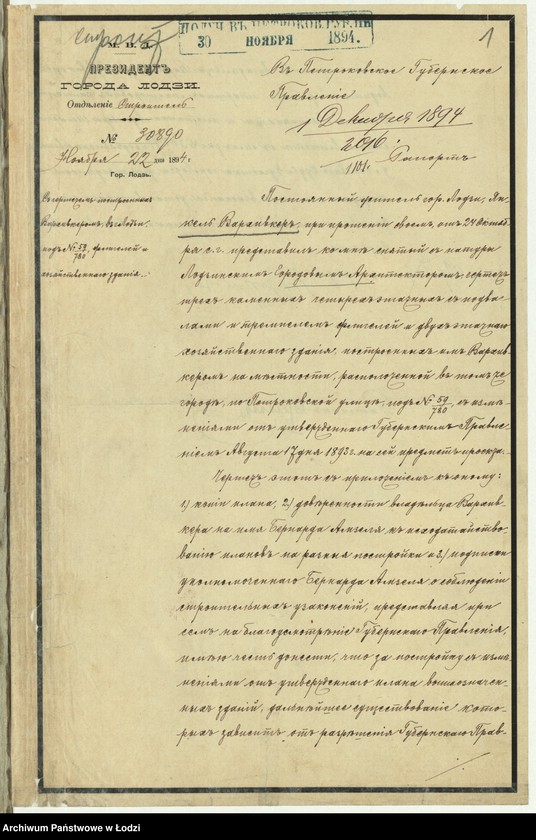 строит
1
ПОЛУЧ. ВЪ ПЕТРОКОВ. ГУБ. ПР.
30 НОЯБРЯ 1894.
М. В. Д.
ПРЕЗИДЕНТЪ
ГОРОДА ЛОДЗИ.
Отдѣленіе Строительн.
№ 30890
Ноября 22 дня 1894 г.
Гор. Лодзь.
Въ Петроковское Губернское
Правленіе
1 Декабря 1894
2016
1101.
Рапортъ
Съ чертежемъ построенныхъ
Вархивкеромъ въ Лодзи,
подъ № 59/780, флигелей и
хозяйственнаго зданія.
Постоянный житель гор. Лодзи, Ян-
кель Вархивкеръ, при прошеніи своемъ, отъ 24 Октяб-
ря с. г. представилъ ко мнѣ снятый съ натуры
Лодзинскимъ Городовымъ Архитекторомъ чертежъ
трехъ каменныхъ четырехэтажныхъ съ подва-
лами и тремпелемъ флигелей и двухэтажнаго
хозяйственнаго зданія, построенныхъ имъ Вархив-
керомъ на мѣстности, расположенной въ томъ же
городѣ, по Петроковской улицѣ, подъ № 59/780, съ измѣ-
неніями отъ утвержденнаго Губернскимъ Правле-
ніемъ Августа 17 дня 1893 г. на сей предметъ проекта.
Чертежъ этотъ съ приложеніемъ къ оному:
1) копіи плана, 2) довѣренности владѣльца Вархив-
кера на имя Бернарда Амзеля къ исходатайство-
ванію плановъ на разныя постройки и 3) подписки
уполномоченнаго Бернарда Амзеля о соблюденіи
строительныхъ узаконеній, представляя при
семъ на благоусмотрѣніе Губернскаго Правленія,
имѣю честь донести, что за постройку съ измѣ-
неніями отъ утвержденнаго плана вышеозначен-
ныхъ зданій, дальнѣйшее существованіе кото-
рыхъ зависитъ отъ разрѣшенія Губернскаго Прав-
Archiwum Państwowe w Łodzi